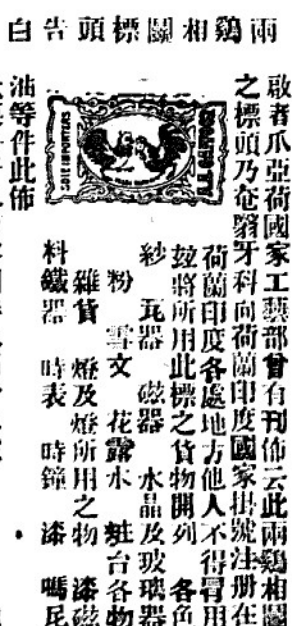 兩鷄相鬬標頭告白
啟者爪亞荷國家工藝部曾有刊佈云此兩鷄相鬬
之標頭乃在牙科向荷蘭印度國家掛號注册在
荷蘭印度各處地方他人不得冒用
玆將所用此標之貨物開列 各色
紗 瓦器 磁器 水晶及玻璃器
粉 雪文 花露水 粧台各物
雜貨 燈及燈所用之物 漆磁
料鐵器 時表 時鐘 漆 嗎尼
油等件此佈
SOLE IMPORTERS